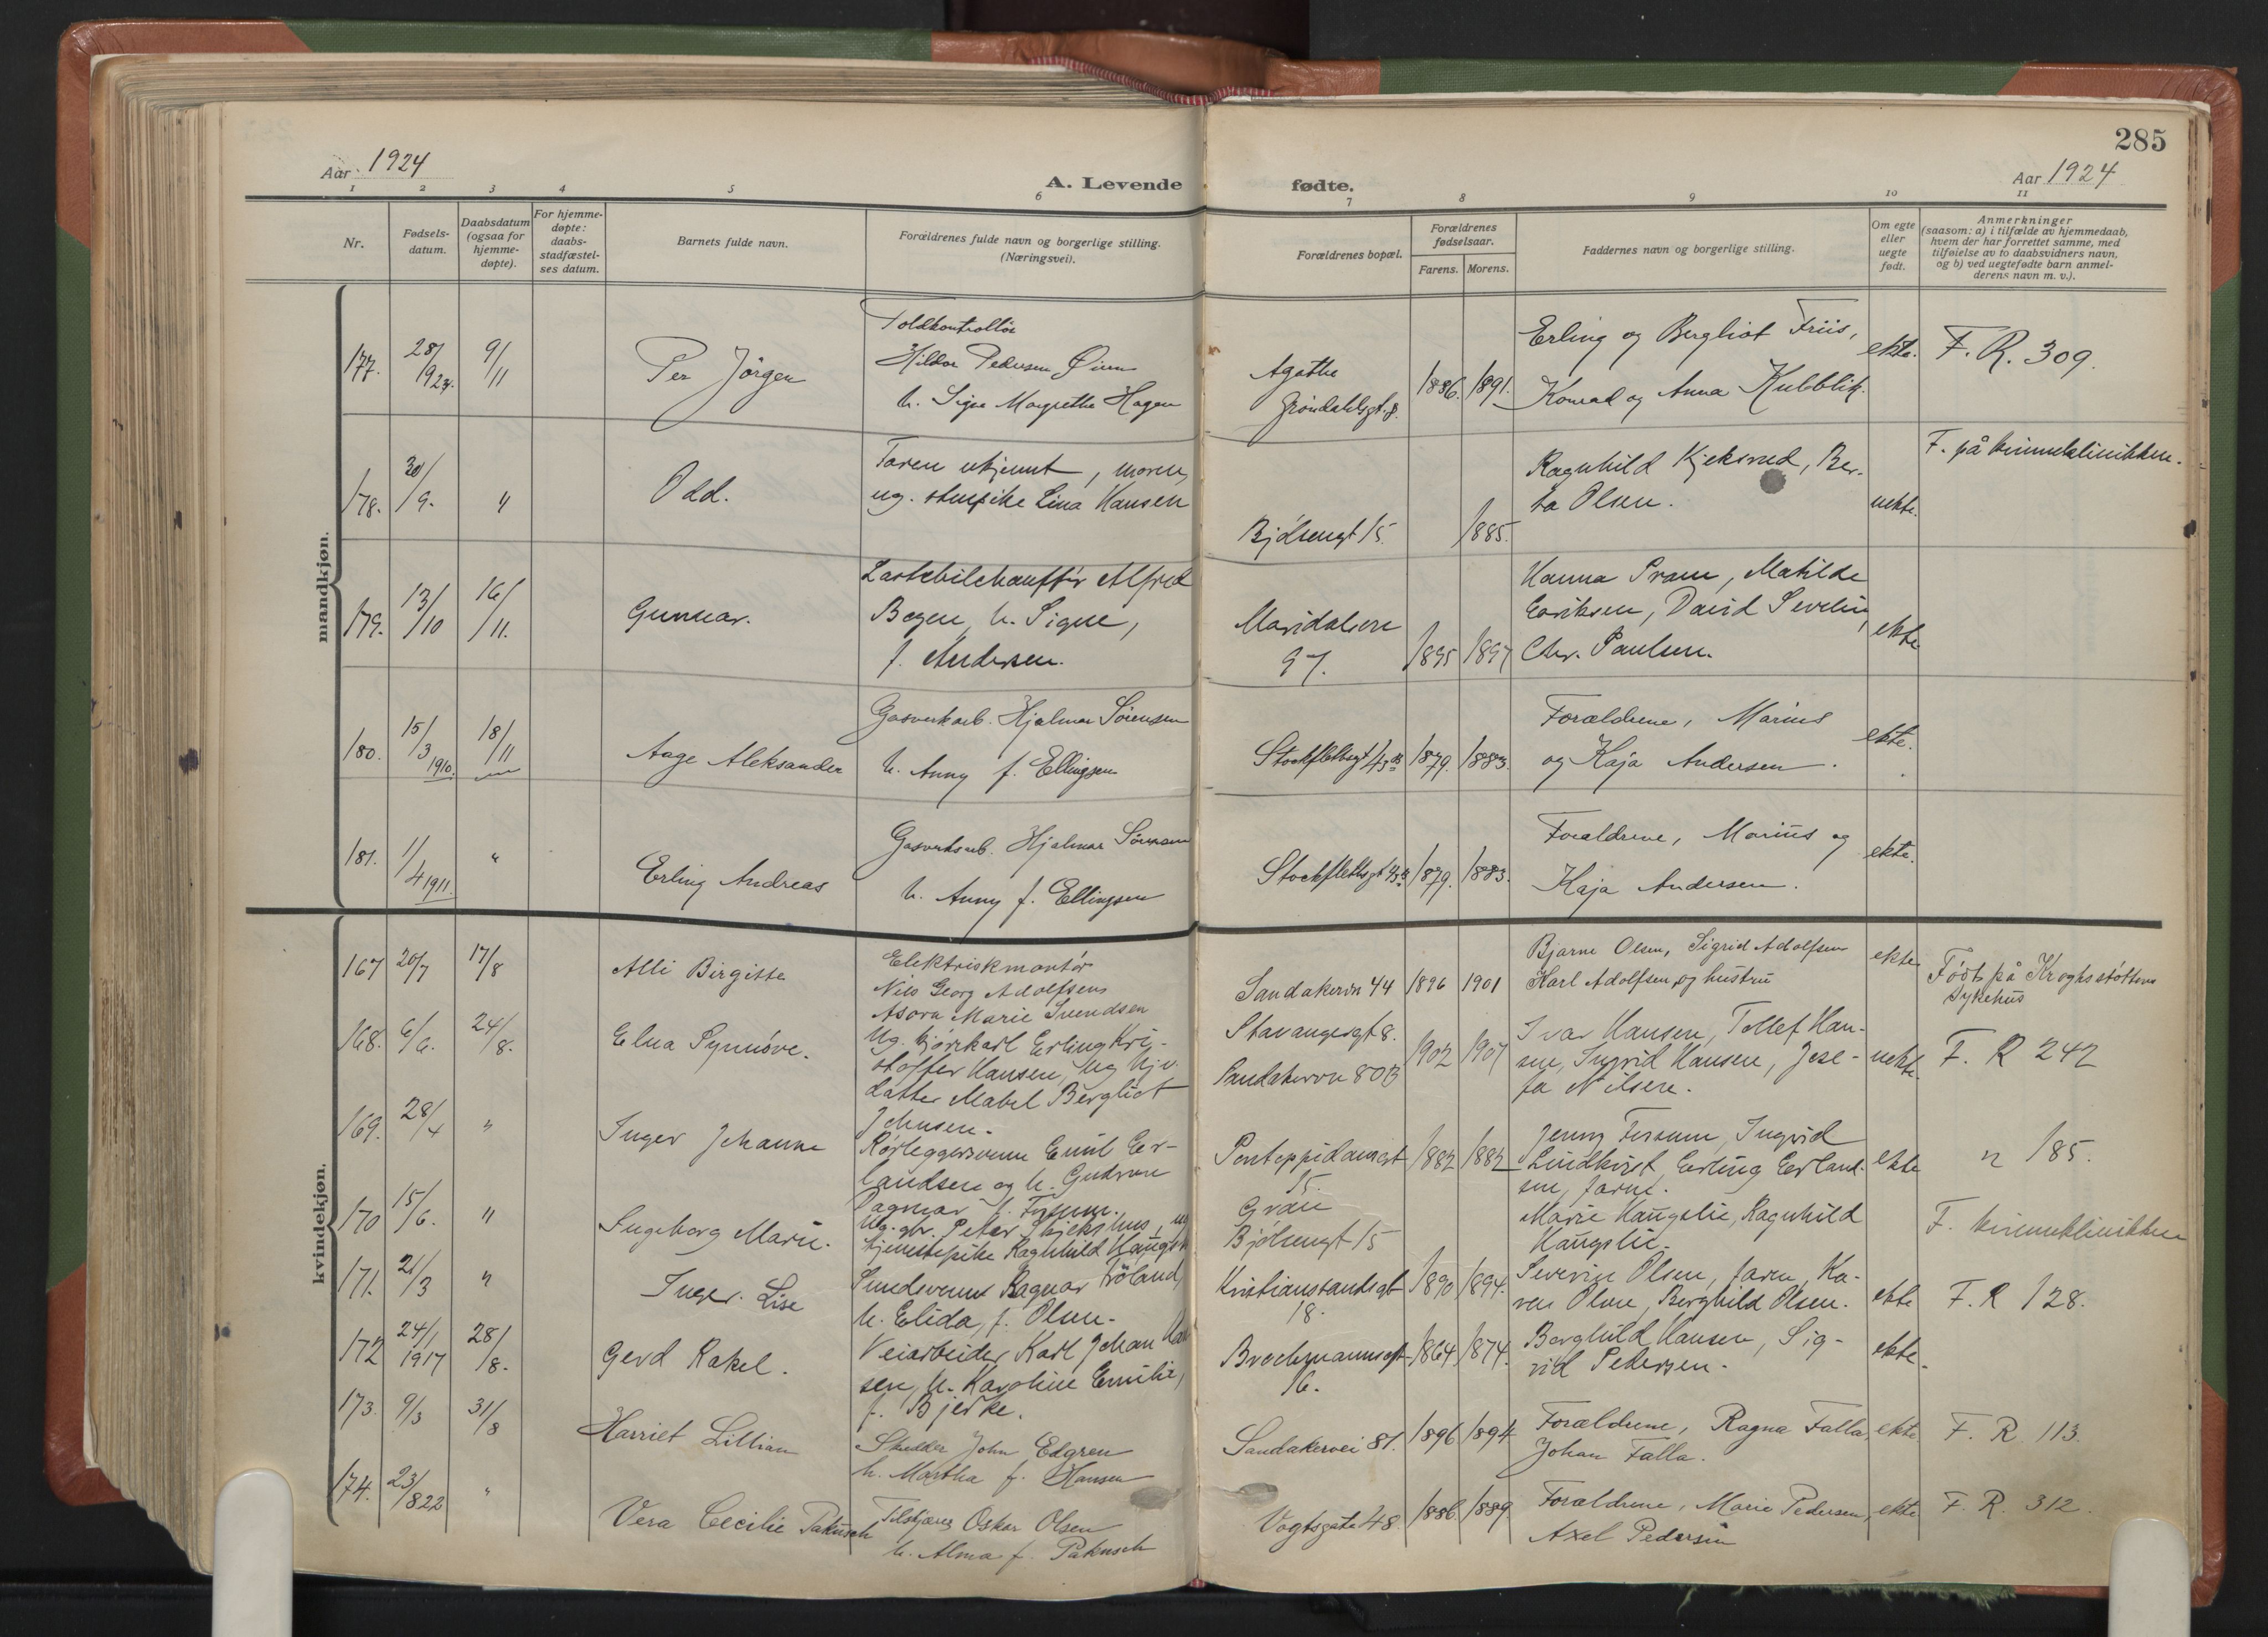 285
Aar 1924
A. Levende fødte.
Aar 1924
1 2 3 4 5 6 7 8 9 10 11
Nr.
Fødsels-
datum.
Daabsdatum
(ogsaa for
hjemme-
døpte).
For hjemme-
døpte:
daabs-
stadfæstel-
ses datum.
Barnets fulde navn.
Forældrenes fulde navn og borgerlige stilling.
(Næringsvei).
Forældrenes bopæl.
Forældrenes
fødselsaar.
Farens. Morens.
Faddernes navn og borgerlige stilling.
Om egte
eller
uegte
født.
Anmerkninger
(saasom: a) i tilfælde av hjemmedaab,
hvem der har forrettet samme, med
tilføielse av to daabsvidners navn,
og b) ved uegtefødte barn anmel-
derens navn m. v.).
mandkjøn.
177. 28/1924. 9/11 Per Jörgen
Toldkontrollör
Pedersen
h. Signe Margrethe Hagen
Agathe
Gröndahlsgt. 8.
1886. 1891.
Erling og Bergliot Friis,
Konrad og Anna Kubblik.
ekte. F. R. 309.
178. 30/9. " Odd.
Faren ukjennt, moren
ug. stuepike Lina Hansen
Bjölsengt 15. 1885.
Ragnhild Kjeksrud, Ber-
ta Olsen.
uekte. F. på kvinneklinikken.
179. 13/10 16/11. Gunnar.
Lastebilchaufför Alfred
h. Signe,
f. Andersen.
Maridalsvn
97. 1895 1897
Hanna Pram, Matilde
Eriksen, David Sevelin,
Chr. Paulsen.
ekte
180. 15/3 1910. 18/11 Aage Aleksander
Gasverksarb. Hjalmar Sörensen
h. Anny f. Ellingsen
Stockflethsgt 1879. 1883.
Forældrene, Marius
og Kaja Andersen.
ekte.
181. 1/4 1911. " Erling Andreas
Gasverksarb. Hjalmar Sörensen
h. Anny f. Ellingsen
Stockflethsgt 1879. 1883.
Forældrene, Marius og
Kaja Andersen.
ekte.
kvindekjøn.
167 20/7 17/8 Alli Birgitte
Elektriskmontör
Nils Georg Adolfsen
Asora Marie Svendsen
Sandakervn 44 1896 1901
Bjarne Olsen, Sigrid Adolfsen
Karl Adolfsen og hustru
ekte
Födt på Kroghsstöttens
sykehus
168. 6/6. 24/8. Elna Synnöve.
Ug. kjörekarl Erling Kri-
stoffer Hansen, ug hjv.
datter Mabel Bergliot
Johnsen.
Stavangergt 8.
Sandakervn 80B
1902 1907
Ivar Hansen, Tollef Han-
sen, Ingrid Hansen, Jose-
fa Nilsen.
uekte. F. R 242
169. 28/4 " Inger Johanne
Rörleggersvenn Emil Er-
landsen og h. Gudrun
Dagmar f. Fossum.
Pontoppidansgt
15. 1882 1882
Jenny Fossum, Ingrid
Lindkvist, Erling Erland-
sen, faren.
ekte " 185.
170 15/6. " Ingeborg Marie.
Ug. gbr. Peter Skjekshus, ug
tjenestepike Ragnhild Haugsli
Gran
Bjölsengt 15
Marie Haugslie, Ragnhild
Haugslie.
F. kvinneklinikken
171. 21/3 " Inger Lise
Smedsvenn Ragnar Fröland,
h. Elida, f. Olsen.
Kristiansandsgt
18. 1890 1894.
Severin Olsen, faren, Ka-
ren Olsen, Berghild Olsen.
ekte F. R 128.
172 24/1 1917 28/8. Gerd Rakel.
Veiarbeider Karl Johan Han
sen, h. Karoline Emilie,
f. Bjerke.
Brochmannsgt
16. 1864 1874.
Borghild Hansen, Sig-
rid Pedersen.
ekte.
173. 9/3 31/8 Harriet Lillian
John Edgren
h. Martha f. Hansen
Sandakervei 81. 1896 1894
Forældrene, Ragna Falla,
Johan Falla.
ekte F. R 113.
174. 23/8 22 " Vera Cecilie Pakusch
Oskar Olsen
h. Alma f. Pakusch
Vogtsgate 48. 1886 1889
Forældrene, Marie Pedersen,
Axel Pedersen
ekte F. R. 312.